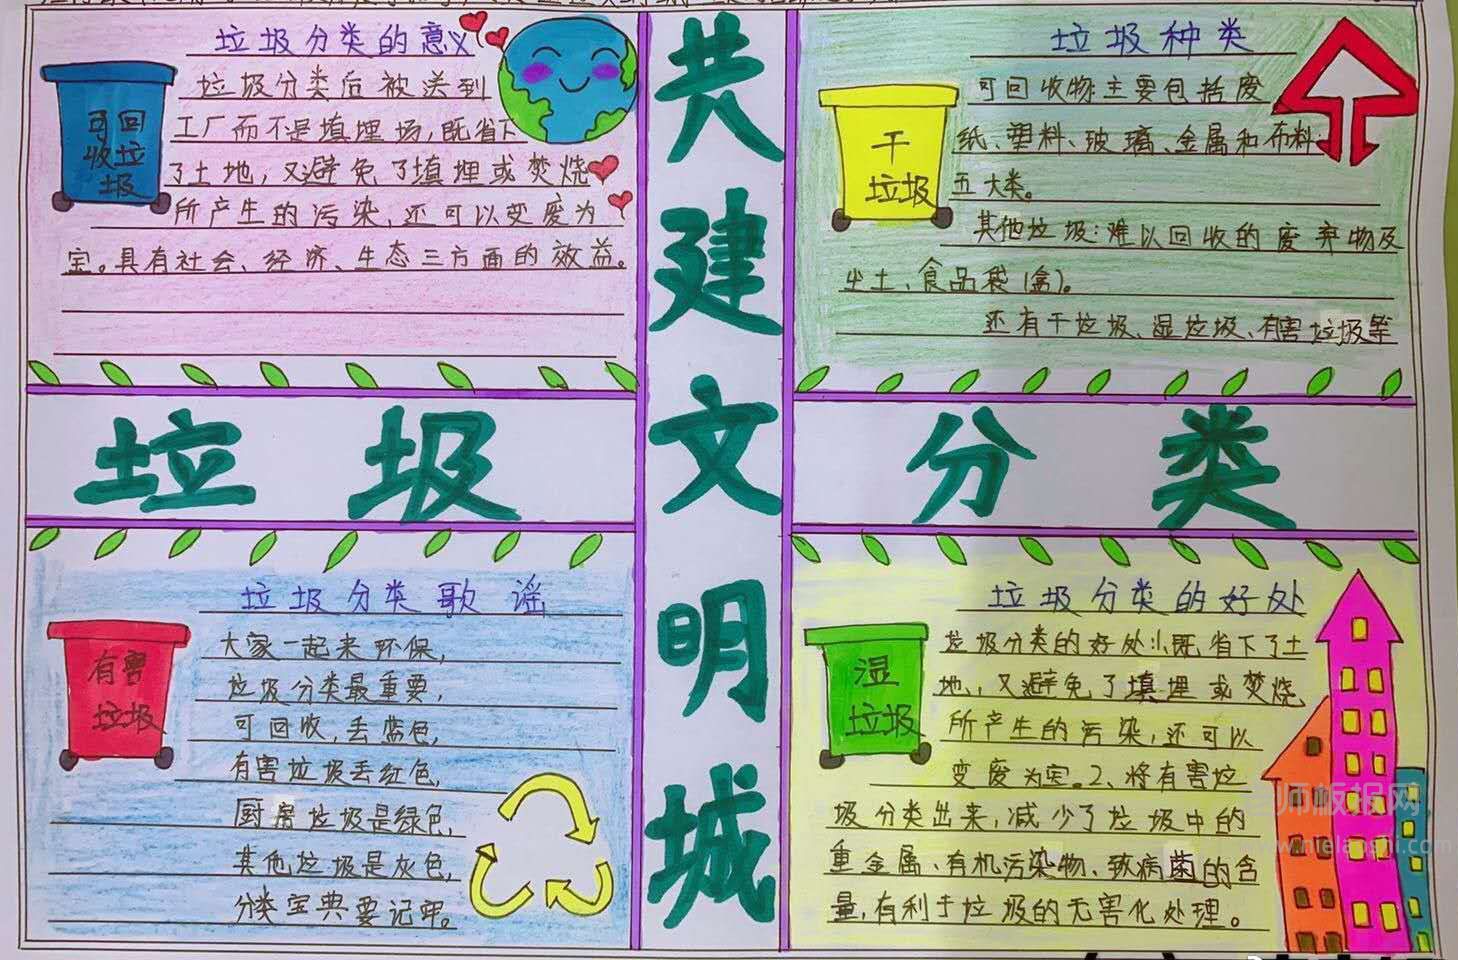 垃圾分类的意义
垃圾分类后被送到
工厂而不是填埋场,既省下
了土地,又避免了填埋或焚烧
所产生的污染,还可以变废为
宝。具有社会、经济、生态三方面的效益。
可回
收垃
圾
共建文明城
垃圾种类
可回收物主要包括废
纸、塑料、玻璃、金属和布料
五大类。
其他垃圾:难以回收的废弃物及
尘土、食品袋(盒)。
还有干垃圾、湿垃圾、有害垃圾等
干
垃圾
垃圾
分类
垃圾分类歌谣
大家一起来环保,
垃圾分类最重要,
可回收,丢蓝色,
有害垃圾丢红色,
厨房垃圾是绿色,
其他垃圾是灰色,
分类宝典要记牢。
有害
垃圾
垃圾分类的好处
垃圾分类的好处1.既省下了土
地,又避免了填埋或焚烧
所产生的污染,还可以
变废为宝。2、将有害垃
圾分类出来,减少了垃圾中的
重金属、有机污染物、致病菌的含
量,有利于垃圾的无害化处理。
湿
垃圾
师板报网